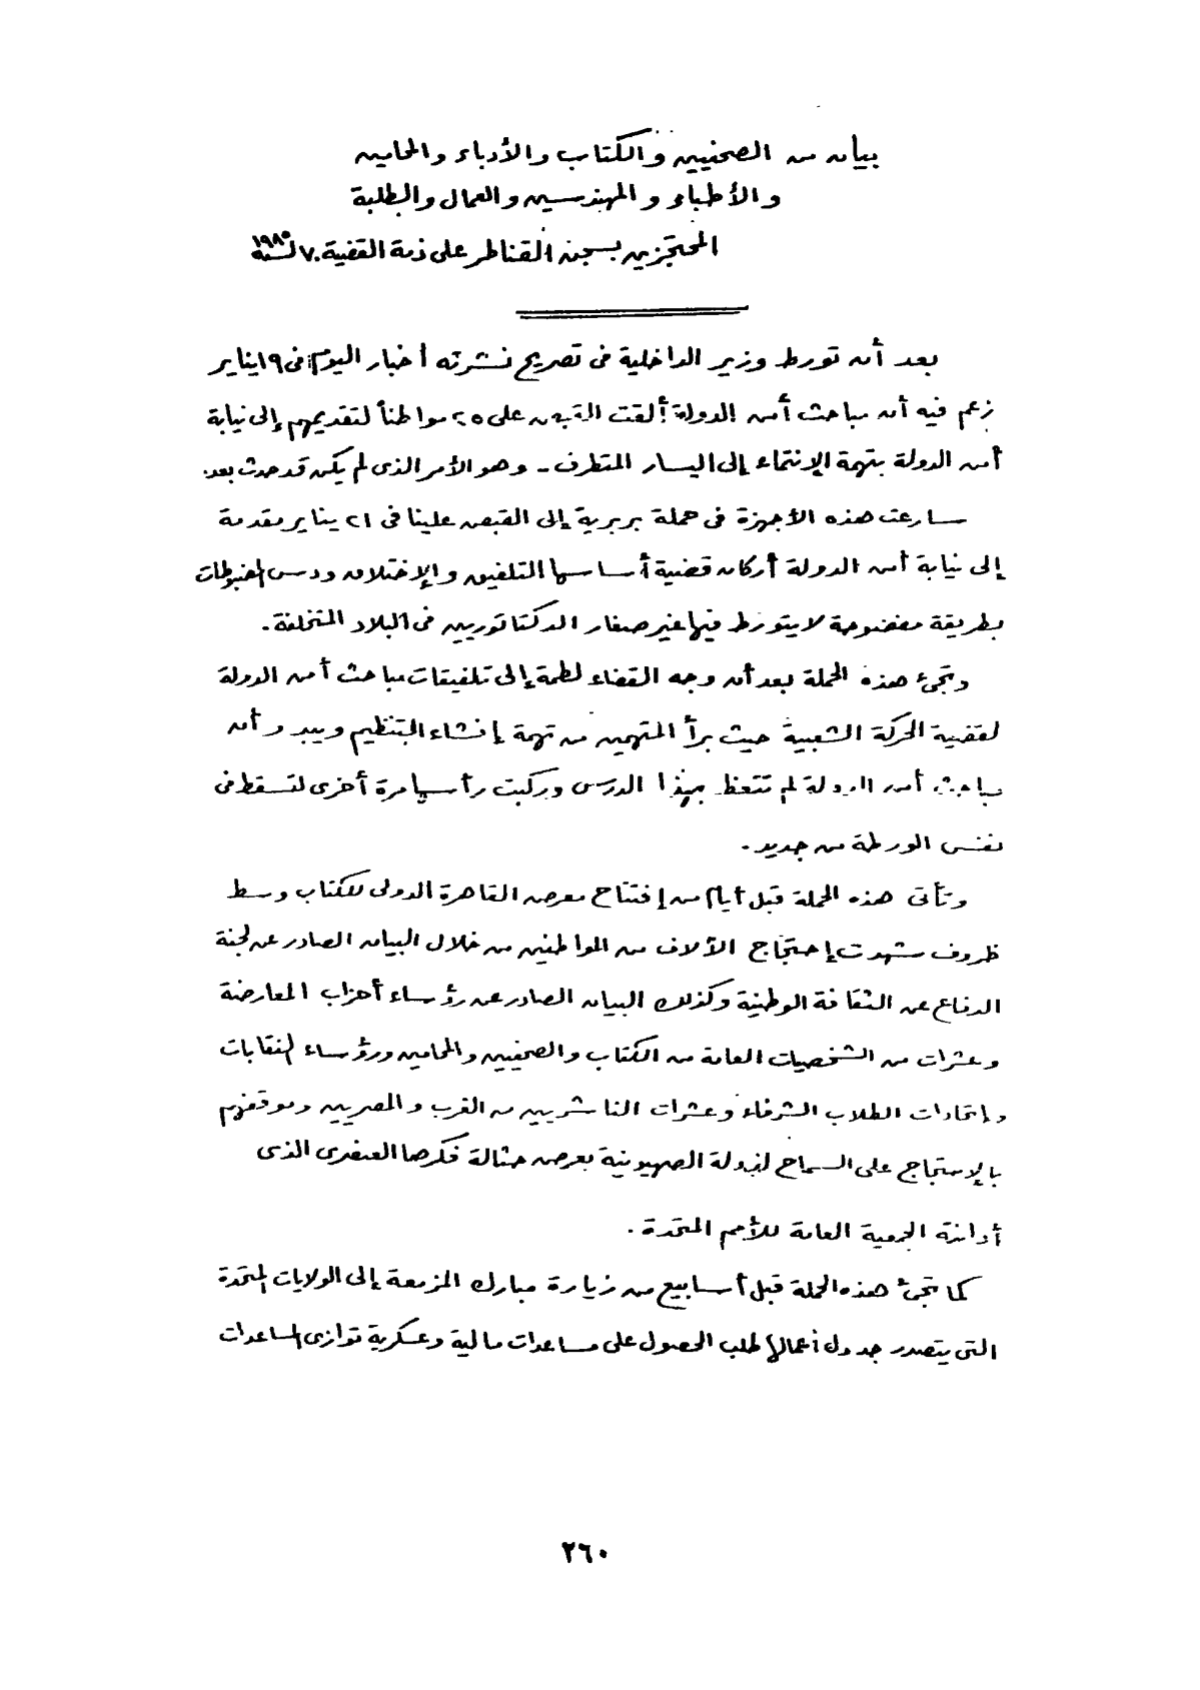 بيان من الصحفيين والكتاب والأدباء والمحامين
والأطباء والمهندسين والعمال والطلبة
المحتجزين بسجن القناطر على ذمة القضية ٧٠ لسنة ١٩٨٥
بعد أن تورط وزير الداخلية فى تصريح نشرته أخبار اليوم فى ١٩ يناير
زعم فيه أن مباحث أمن الدولة ألقت القبض على ٢٥ مواطناً لتقديمهم إلى نيابة
أمن الدولة بتهمة الإنتماء إلى اليسار المتطرف - وهو الأمر الذى لم يكن قد حدث بعد.
سارعت هذه الأجهزة فى حملة بربرية إلى القبض علينا فى ٢١ يناير مقدمة
إلى نيابة أمن الدولة أركان قضية أساسها التلفيق والإختلاق ودس المضبوطات
بطريقة مفضوحة لا يتورط فيها غير صغار الدكتاتوريين فى البلاد المتخلفة.
وتجئ هذه الحملة بعد أن وجه القضاء لطمة إلى تلفيقات مباحث أمن الدولة
لقضية الحركة الشعبية حيث برأ المتهمين من تهمة إنشاء التنظيم ويبدو أن
مباحث أمن الدولة لم تتعظ بهذا الدرس وركبت رأسها مرة أخرى لتسقط فى
نفس الورطة من جديد.
وتأتى هذه الحملة قبل أيام من إفتتاح معرض القاهرة الدولى للكتاب وسط
ظروف شهدت إحتجاج الآلاف من المواطنين من خلال البيان الصادر عن لجنة
الدفاع عن الثقافة الوطنية وكذلك البيان الصادر عن رؤساء أحزاب المعارضة
وعشرات من الشخصيات العامة من الكتاب والصحفيين والمحامين ورؤساء النقابات
وإتحادات الطلاب الشرفاء وعشرات الناشريين من العرب والمصريين وموقفهم
بالإحتجاج على السماح لدولة الصهيونية بعرض حثالة فكرها العنصرى الذى
أدانته الجمعية العامة للأمم المتحدة.
كما تجئ هذه الحملة قبل أسابيع من زيارة مبارك المزمعة إلى الولايات المتحدة
التى يتصدر جدول أعمالها طلب الحصول على مساعدات مالية وعسكرية توازى المساعدات
٢٦٠